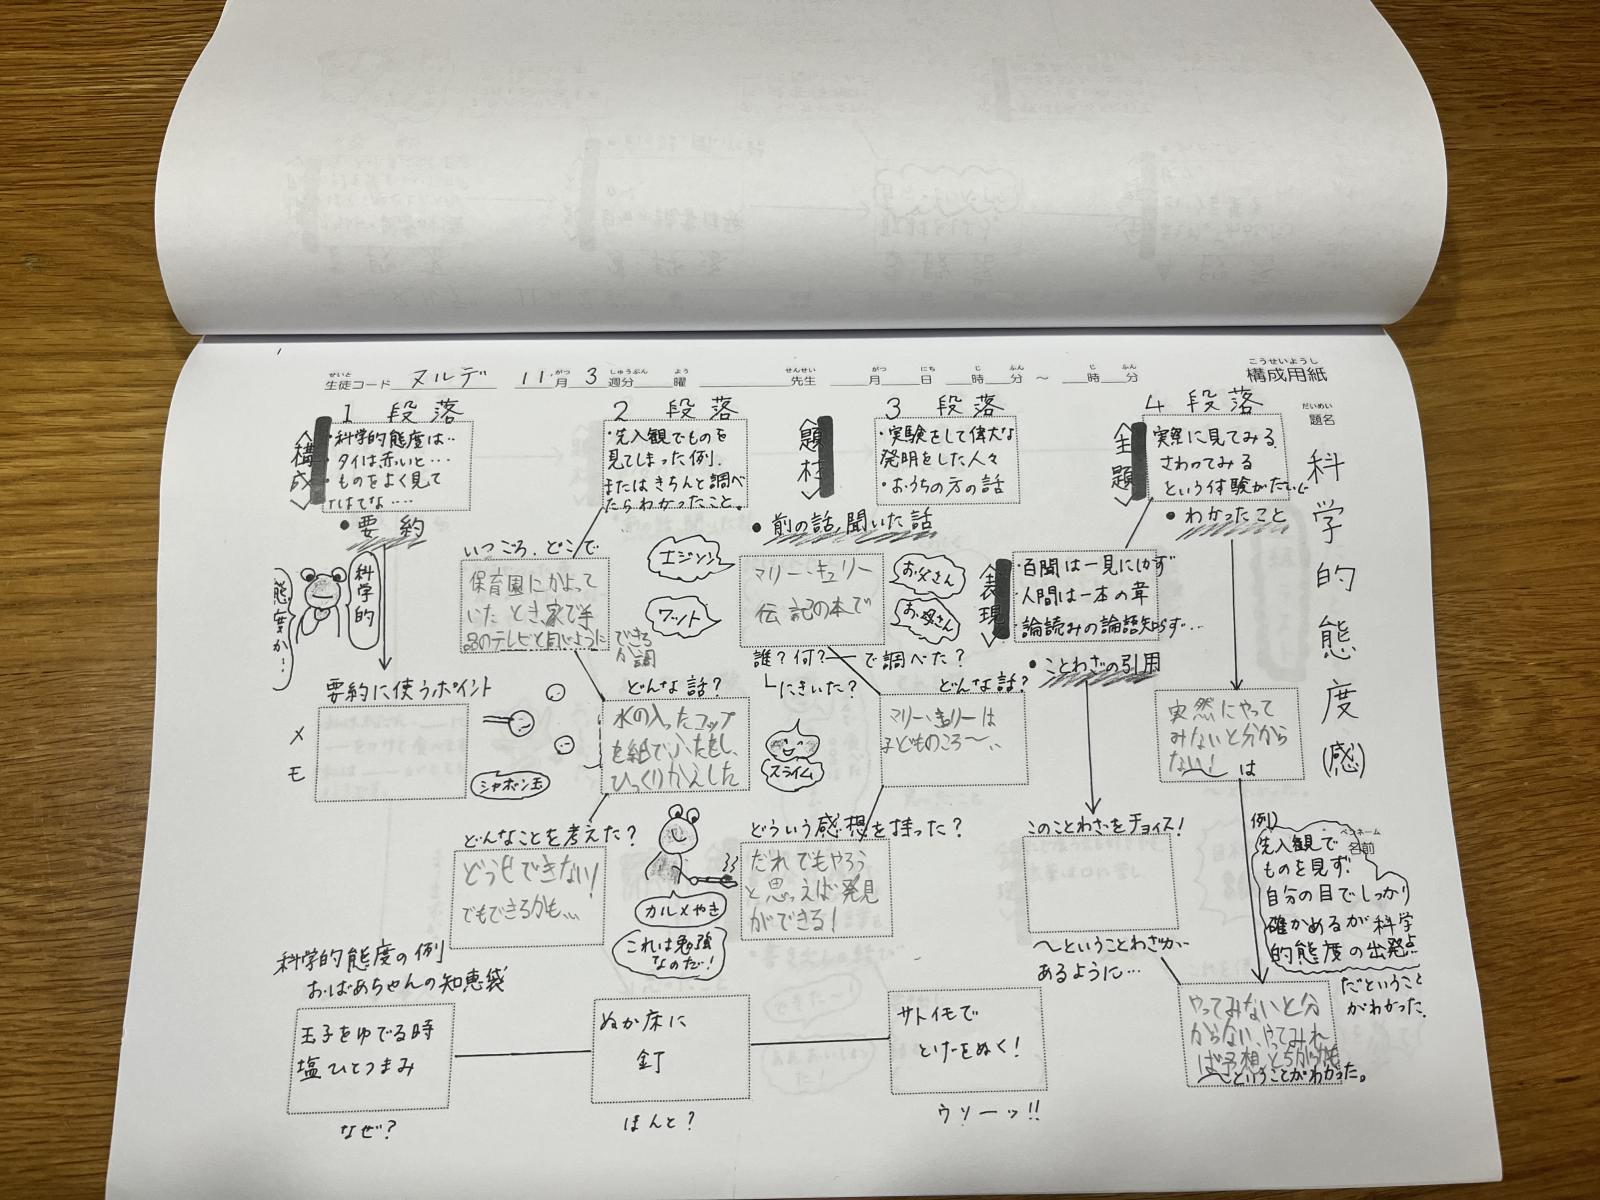 生徒コード ヌルデ 11月 3週分 曜 先生 月 日 時 分 〜 時 分
せいと がつ しゅうぶん よう せんせい がつ にち じ ふん じ ふん
こうせいようし
構成用紙
だいめい
題名
科学的態度(感)
ペンネーム
名前
1 段落
構成
・科学的態度は‥
・タイは赤いと…
・ものをよく見て
いはてな‥‥
・要約
科学的
態度か!
要約に使うポイント
メモ
2 段落
・先入観でものを
見てしまった例.
またはきちんと調べ
たらわかったこと。
いつごろ、どこで
保育園にかよって
いたとき、家で手
品のテレビと同じように
どんな話?
水の入ったコップ
を紙でふたをし、
ひっくりかえした
シャボン玉
どんなことを考えた?
どうせできない!
でもできるかも…
カルメやき
これは勉強
なのだ!
3 段落
題材
・実験をして偉大な
発明をした人々
・おうちの方の話
・前の話,聞いた話
エジソン
ワット
できろ
が調
マリー・キュリー
伝記の本で
お父さん
お母さん
誰?何?―で調べた?
└にきいた?
どんな話?
マリー・キュリーは
子どものころ〜‥
スライム
どういう感想を持った?
だれでもやろう
と思えば発見
ができる!
4 段落
主題
実際に見てみる.
さわってみる
という体験がたいじ
・わかったこと
表現
・百聞は一見にしかず
・人間は一本の葦
・論語読みの論語知らず‥
・ことわざの引用
実然にやって
みないと分から
ない!
〜は
このことわざをチョイス!
〜ということわざが‥
あるように…
例)
先入観で
ものを見ず.
自分の目でしっかり
確かめるが科学
的態度の出発点
だということ
がわかった.
やってみないと分
からない、やってみれ
ば予想とちがうかも
〜ということがわかった。
科学的態度の例
おばあちゃんの知恵袋
玉子をゆでる時
塩ひとつまみ
なぜ?
ぬか床に
釘
ほんと?
サトイモで
とげをぬく!
ウソーッ!!